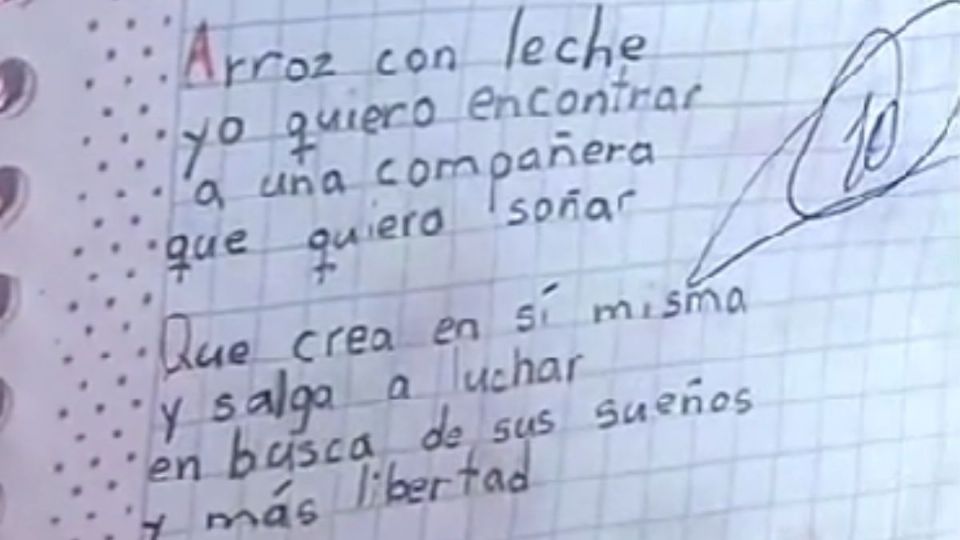 Arroz con leche
yo quiero encontrar
a una compañera
que quiera soñar
10
Que crea en sí misma
y salga a luchar
en busca de sus sueños
y más libertad